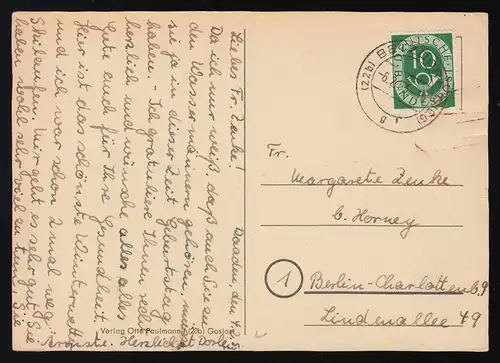 Daaden, den 4.2.
Liebes Fr. Zenke!
Da ich nur weiß, daß auch Sie zu
den Wassermännern gehören
sie ja in dieser Zeit Geburtstag
haben. - Ich gratuliere Ihnen sehr
herzlich und wünsche alles alles
Gute auch für Ihre Gesundheit.
Hier ist das schönste Winterwetter
und ich war schon 2 mal weg
Skilaufen. Mir geht es sehr gut. Sie
haben wohl sehr viel zu tun, Sie
Ärmste. Herzlichst
Verlag Otto Paulmann (20b) Goslar
(22b)
DEUTSCHE
BUNDESPOST
10
Fr.
Margarete Zenke
b. Horney
1
Berlin-Charlottenb. 9
Lindenallee 49